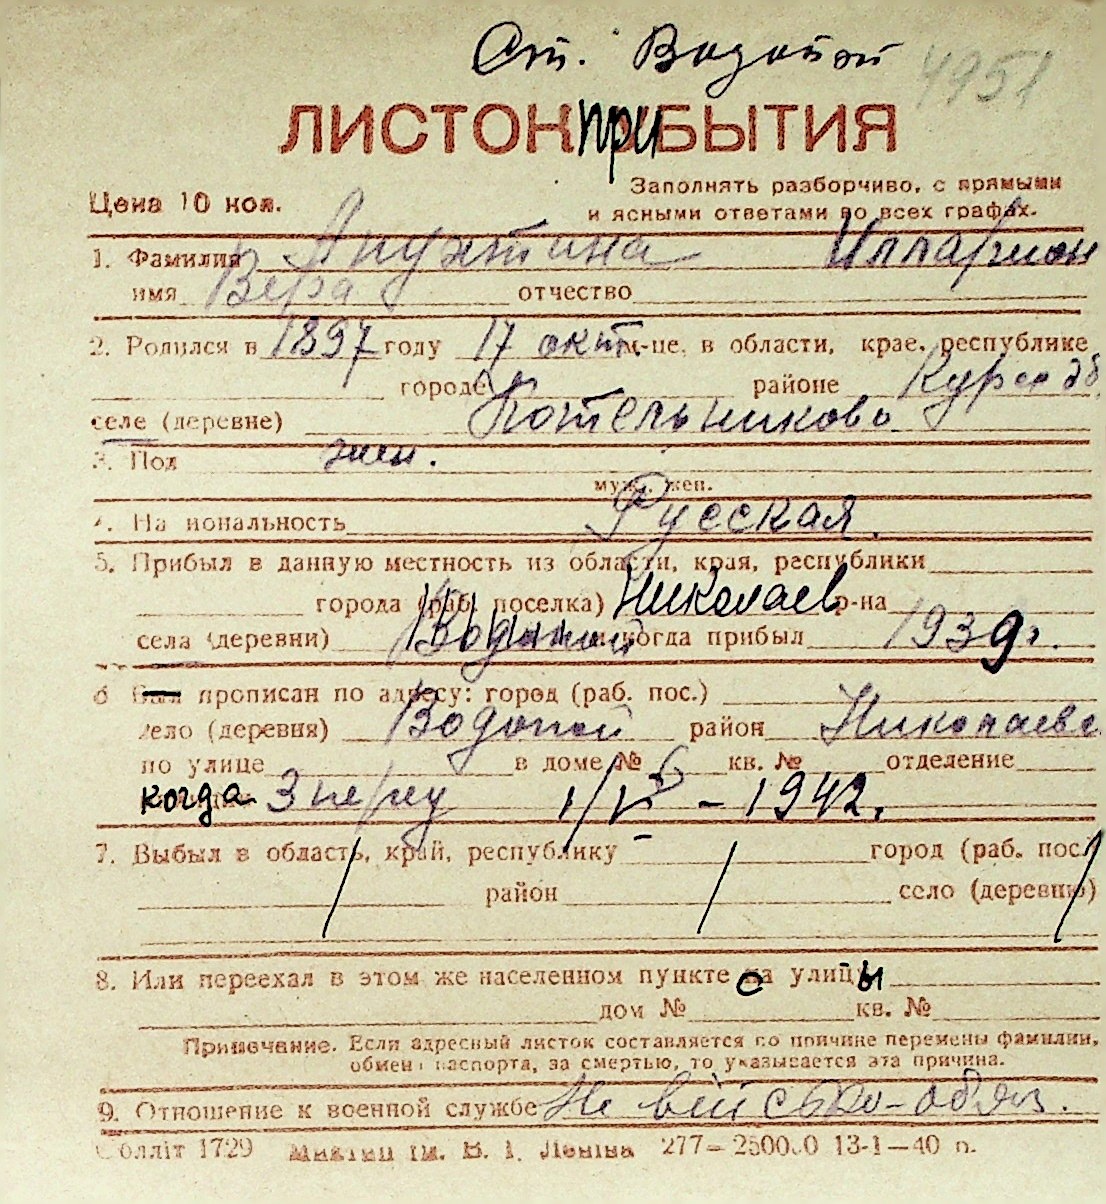 Ст. Водопой 4951
ЛИСТОК ПРИБЫТИЯ
Заполнять разборчиво, с прямыми
Цена 10 коп. и ясными ответами во всех графах.
1. Фамилия Апухтина Илларион
имя Вера отчество
2. Родился в 1897 году 17 окт. м-це, в области, крае, республике
городе районе Курск об.
селе (деревне) Котельниково
3. Пол жен.
муж., жен.
4. Национальность Русская
5. Прибыл в данную местность из области, края, республики
города (раб. поселка) Николаев р-на
села (деревни) Водопой когда прибыл 1939 г.
6 Был прописан по адресу: город (раб. пос.)
село (деревня) Водопой район Николаевс
по улице в доме № 6 кв. № отделение
когда 1942.
7. Выбыл в область, край, республику город (раб. пос.)
район село (деревню)
8. Или переехал в этом же населенном пункте с улицы
дом № кв. №
Примечание. Если адресный листок составляется по причине перемены фамилии,
обмена паспорта, за смертью, то указывается эта причина.
9. Отношение к военной службе Не військо-обяз.
Облліт 1729 ім. В. І. Леніна 277—250000 13-1—40 п.